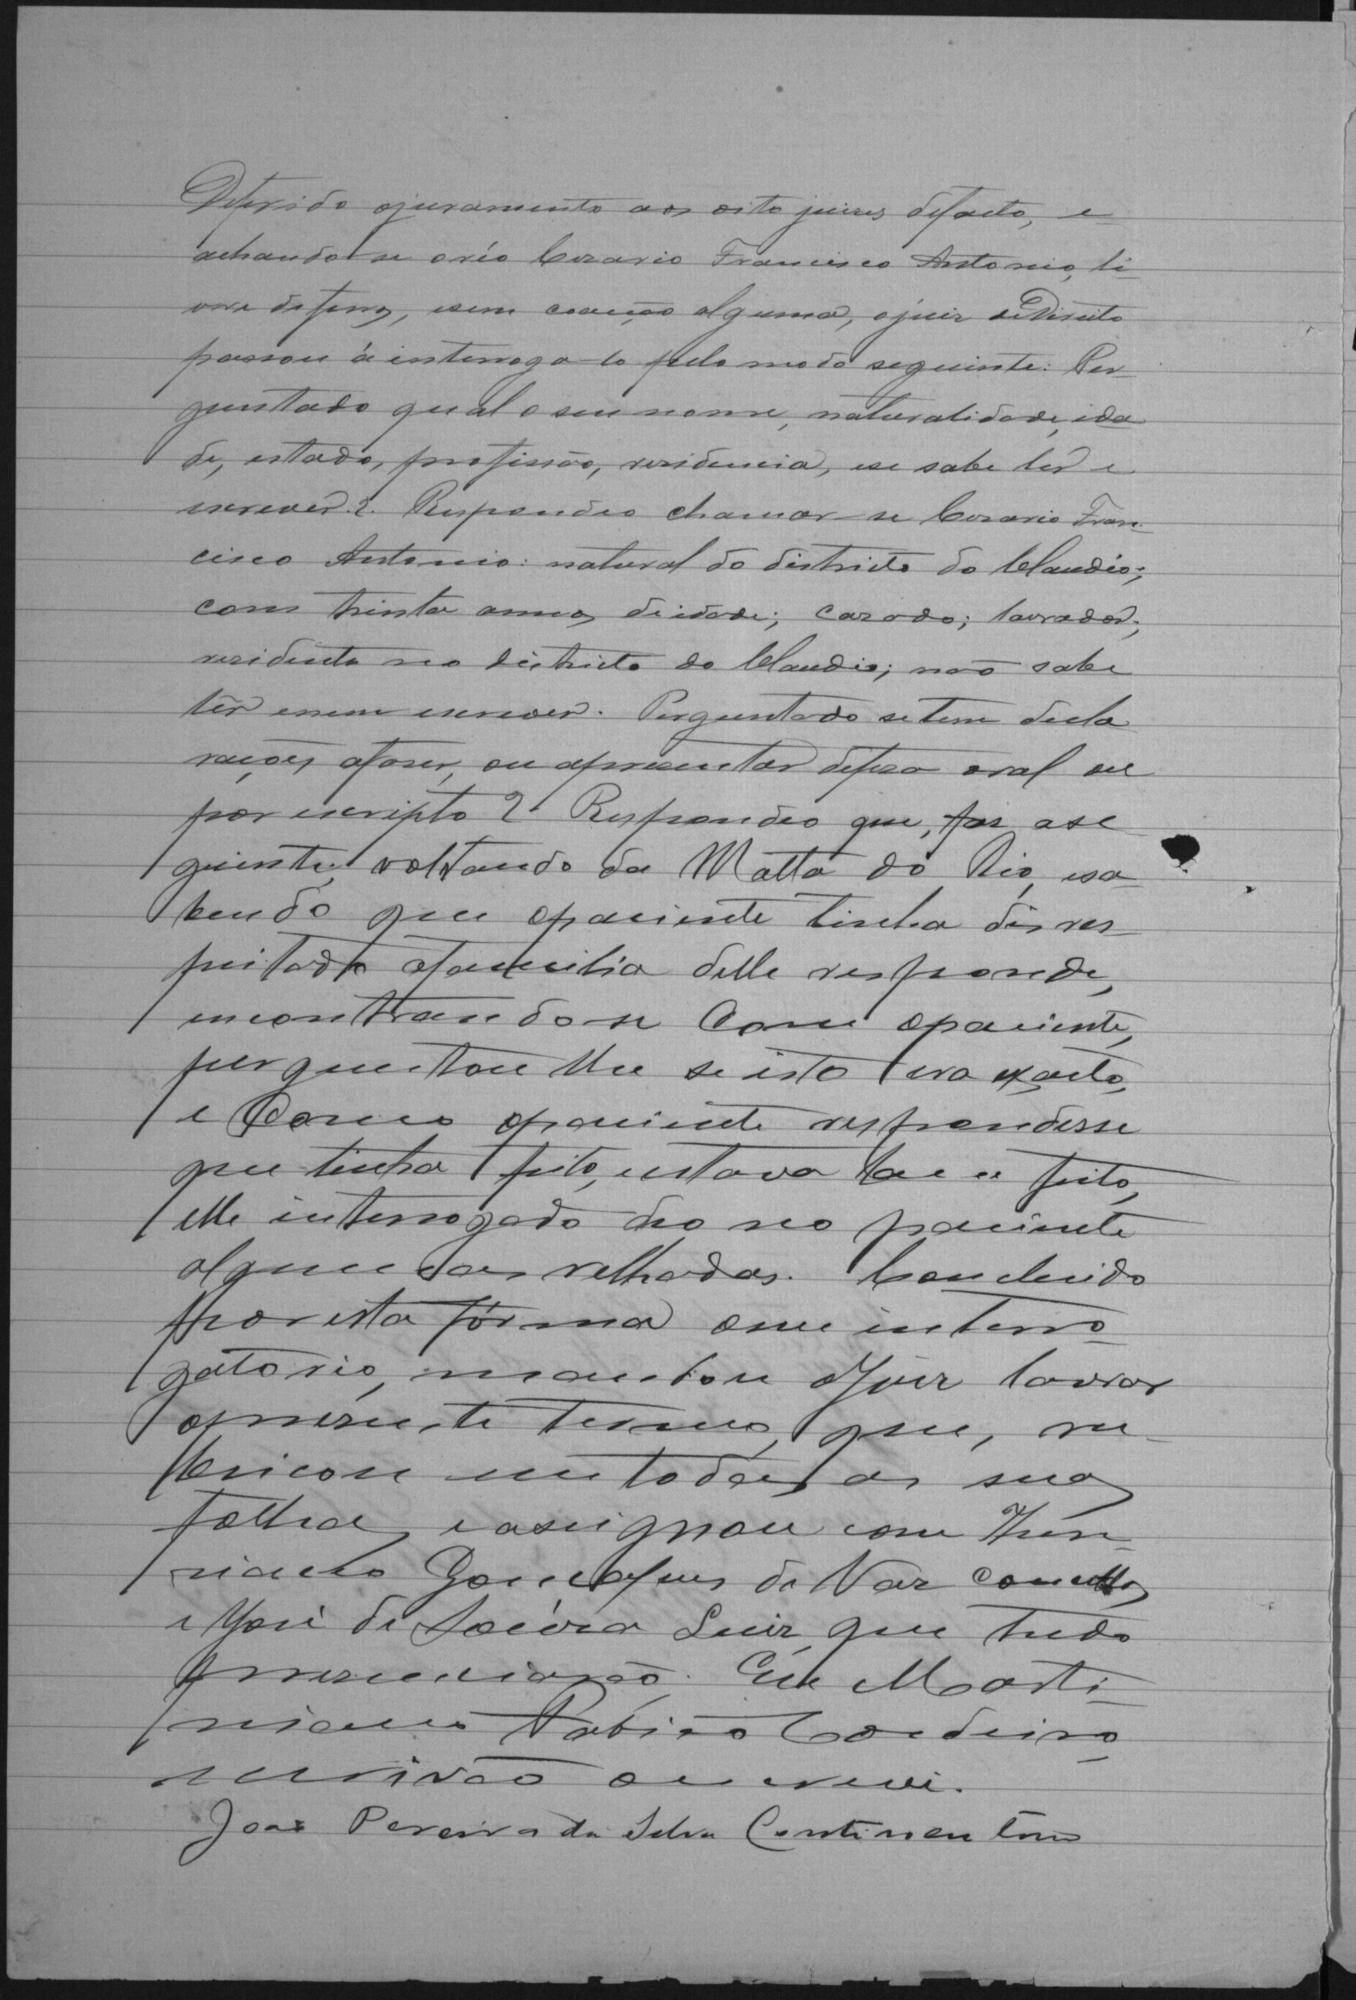 Deferido o juramento aos oito juizes de facto, e
achando-se o réo Cezario Francisco Antonio, li
vre de ferros, e sem coacção alguma, o juiz de Direito
passou á interroga-lo pelo modo seguinte: Per-
guntado qual o seu nome, naturalidade, ida
de, estado, profissão, residencia, e se sabe lêr e
escrever? Respondeo chamar-se Cezario Fran-
cisco Antonio: natural do districto do Claudio;
com trinta annos de idade; cazado; lavrador;
residente no districto do Claudio; não sabe
lêr e nem escrever. Perguntado se tem decla
rações a fazer, ou apresentar defeza oral ou
por escripto? Respondeo que, faz a se
guinte, voltando da Matta do Rio, e sa-
bendo que o paciente tinha disres-
peitado a familia delle responde,
encontrando-se com o paciente,
perguntou lhe se isto era exacto,
e como o paciente respondesse
que tinha feito, estava feito,
elle interrogado deo no paciente
algumas relhadas. Concluido
por esta fórma o seu interro
gatorio, mandou o Juiz lavrar
o presente termo, que, ru-
bricou em todas as suas
folhas, e assignou com
Gonçalves de Vaz
e José de Souza Luiz que tudo
presenciarão. Eu Marti-
niano Cordeiro
escrivão o escrevi.
João Pereira da Silva Continentino